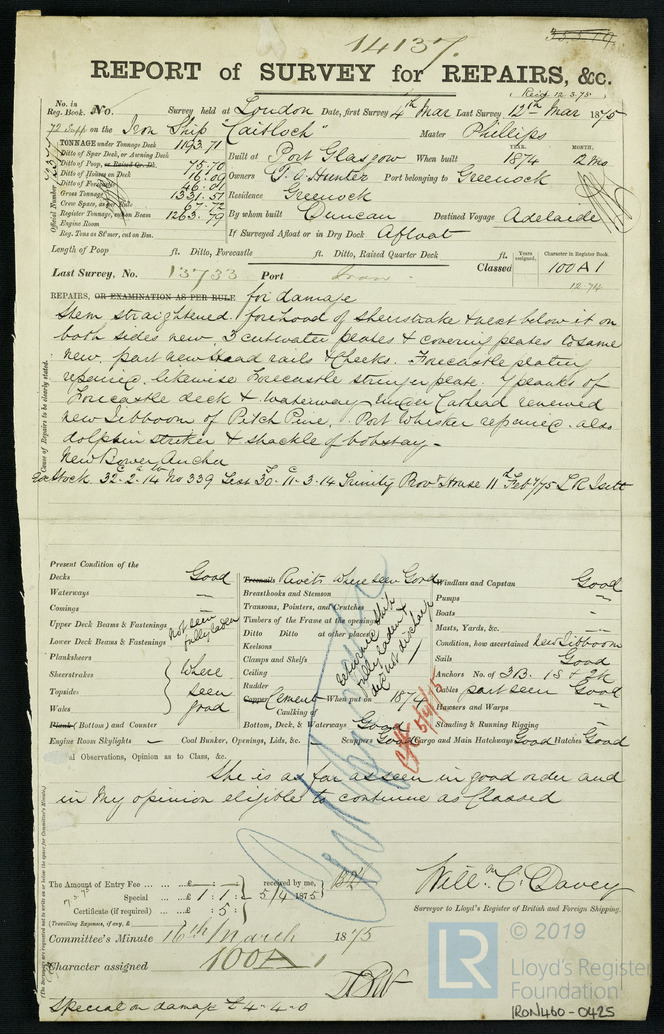 14137.
REPORT of SURVEY for REPAIRS, &c.
(Recd 12.3.75)
No. in Reg. Book. No. Survey held at London Date, first Survey 4th Mar Last Survey 12th Mar 1875
72 Supp on the Iron Ship "Cairloch" Master Phillips
TONNAGE under Tonnage Deck 1193.71
Ditto of Spar Deck, or Awning Deck
Ditto of Poop, or Raised Qr. Dk. 75.70
Ditto of Houses on Deck 16.09
Ditto of Forecastle 46.01
Gross Tonnage 1331.51
Crew Space, as per Rule 67.72
Register Tonnage, cut on Beam 1263.79
Engine Room
Reg. Tons as St'mer, cut on Bm.
Official Number
Built at Port Glasgow When built YEAR. 1874 MONTH. 12 mo
Owners T. O. Hunter Port belonging to Greenock
Residence Greenock
By whom built Duncan Destined Voyage Adelaide
If Surveyed Afloat or in Dry Dock Afloat
Length of Poop ft. Ditto, Forecastle ft. Ditto, Raised Quarter Deck ft.
Last Survey, No. 13733 Port Iron Classed Years assigned. Character in Register Book. 100A1
12.74
REPAIRS, OR EXAMINATION AS PER RULE for damage
Stem straightened forehood of sheerstrake & next below it on
both sides new, 3 cutwater plates & covering plates to same
new, part new Head rails & Cheeks. Forecastle plating
repaired, likewise Forecastle stringer plate. 7 planks of
Forecastle deck & waterway under Cathead renewed
new Jibboom of Pitch Pine, 1 Port Whisker repaired. also
dolphin striker & shackle of bobstay -
New Bower Anchor
Ex Stock 32-2-14 No 339 Test 30-11-3-14 Trinity Provg House 11th Feby/75 L R Isitt
Cause of Repairs to be clearly stated.
Present Condition of the
Decks Good
Waterways "
Comings "
Upper Deck Beams & Fastenings not seen
Lower Deck Beams & Fastenings fully laden
Planksheers
Sheerstrakes where
Topsides seen
Wales good
Plank (Bottom) and Counter
Engine Room Skylights — Coal Bunker, Openings, Lids, &c. — Scuppers Good Cargo and Main Hatchways Good Hatches Good
Treenails Rivets where seen Good
Breasthooks and Stemson
Transoms, Pointers, and Crutches
Timbers of the Frame at the openings
Ditto Ditto at other places
Keelsons
Clamps and Shelfs
Ceiling
Rudder
Copper Cement When put on 1874
Caulking of
Bottom, Deck, & Waterways Good
ship
fully laden &
did not discharge
Windlass and Capstan Good
Pumps "
Boats "
Masts, Yards, &c. "
Condition, how ascertained new Jibboom
Sails Good
Anchors No. of 3B. 1S & 2K
Cables part seen Good
Hawsers and Warps "
Standing & Running Rigging "
5/4/75
al Observations, Opinion as to Class, &c.
She is as far as seen in good order and
in my opinion eligible to continue as Classed
The Amount of Entry Fee ... ... ...£ — : — : received by me,
Special ... ...£ 1 : 1 : 5/4 1875
Certificate (if required) ... : 5 :
(Travelling Expenses, if any, £
Willm C. Davey
Surveyor to Lloyd's Register of British and Foreign Shipping.
Committee's Minute 16th March 1875
Character assigned 100A1
Special on damage £4-4-0
© 2019
LR Lloyd's Register
Foundation
IRON460-0425